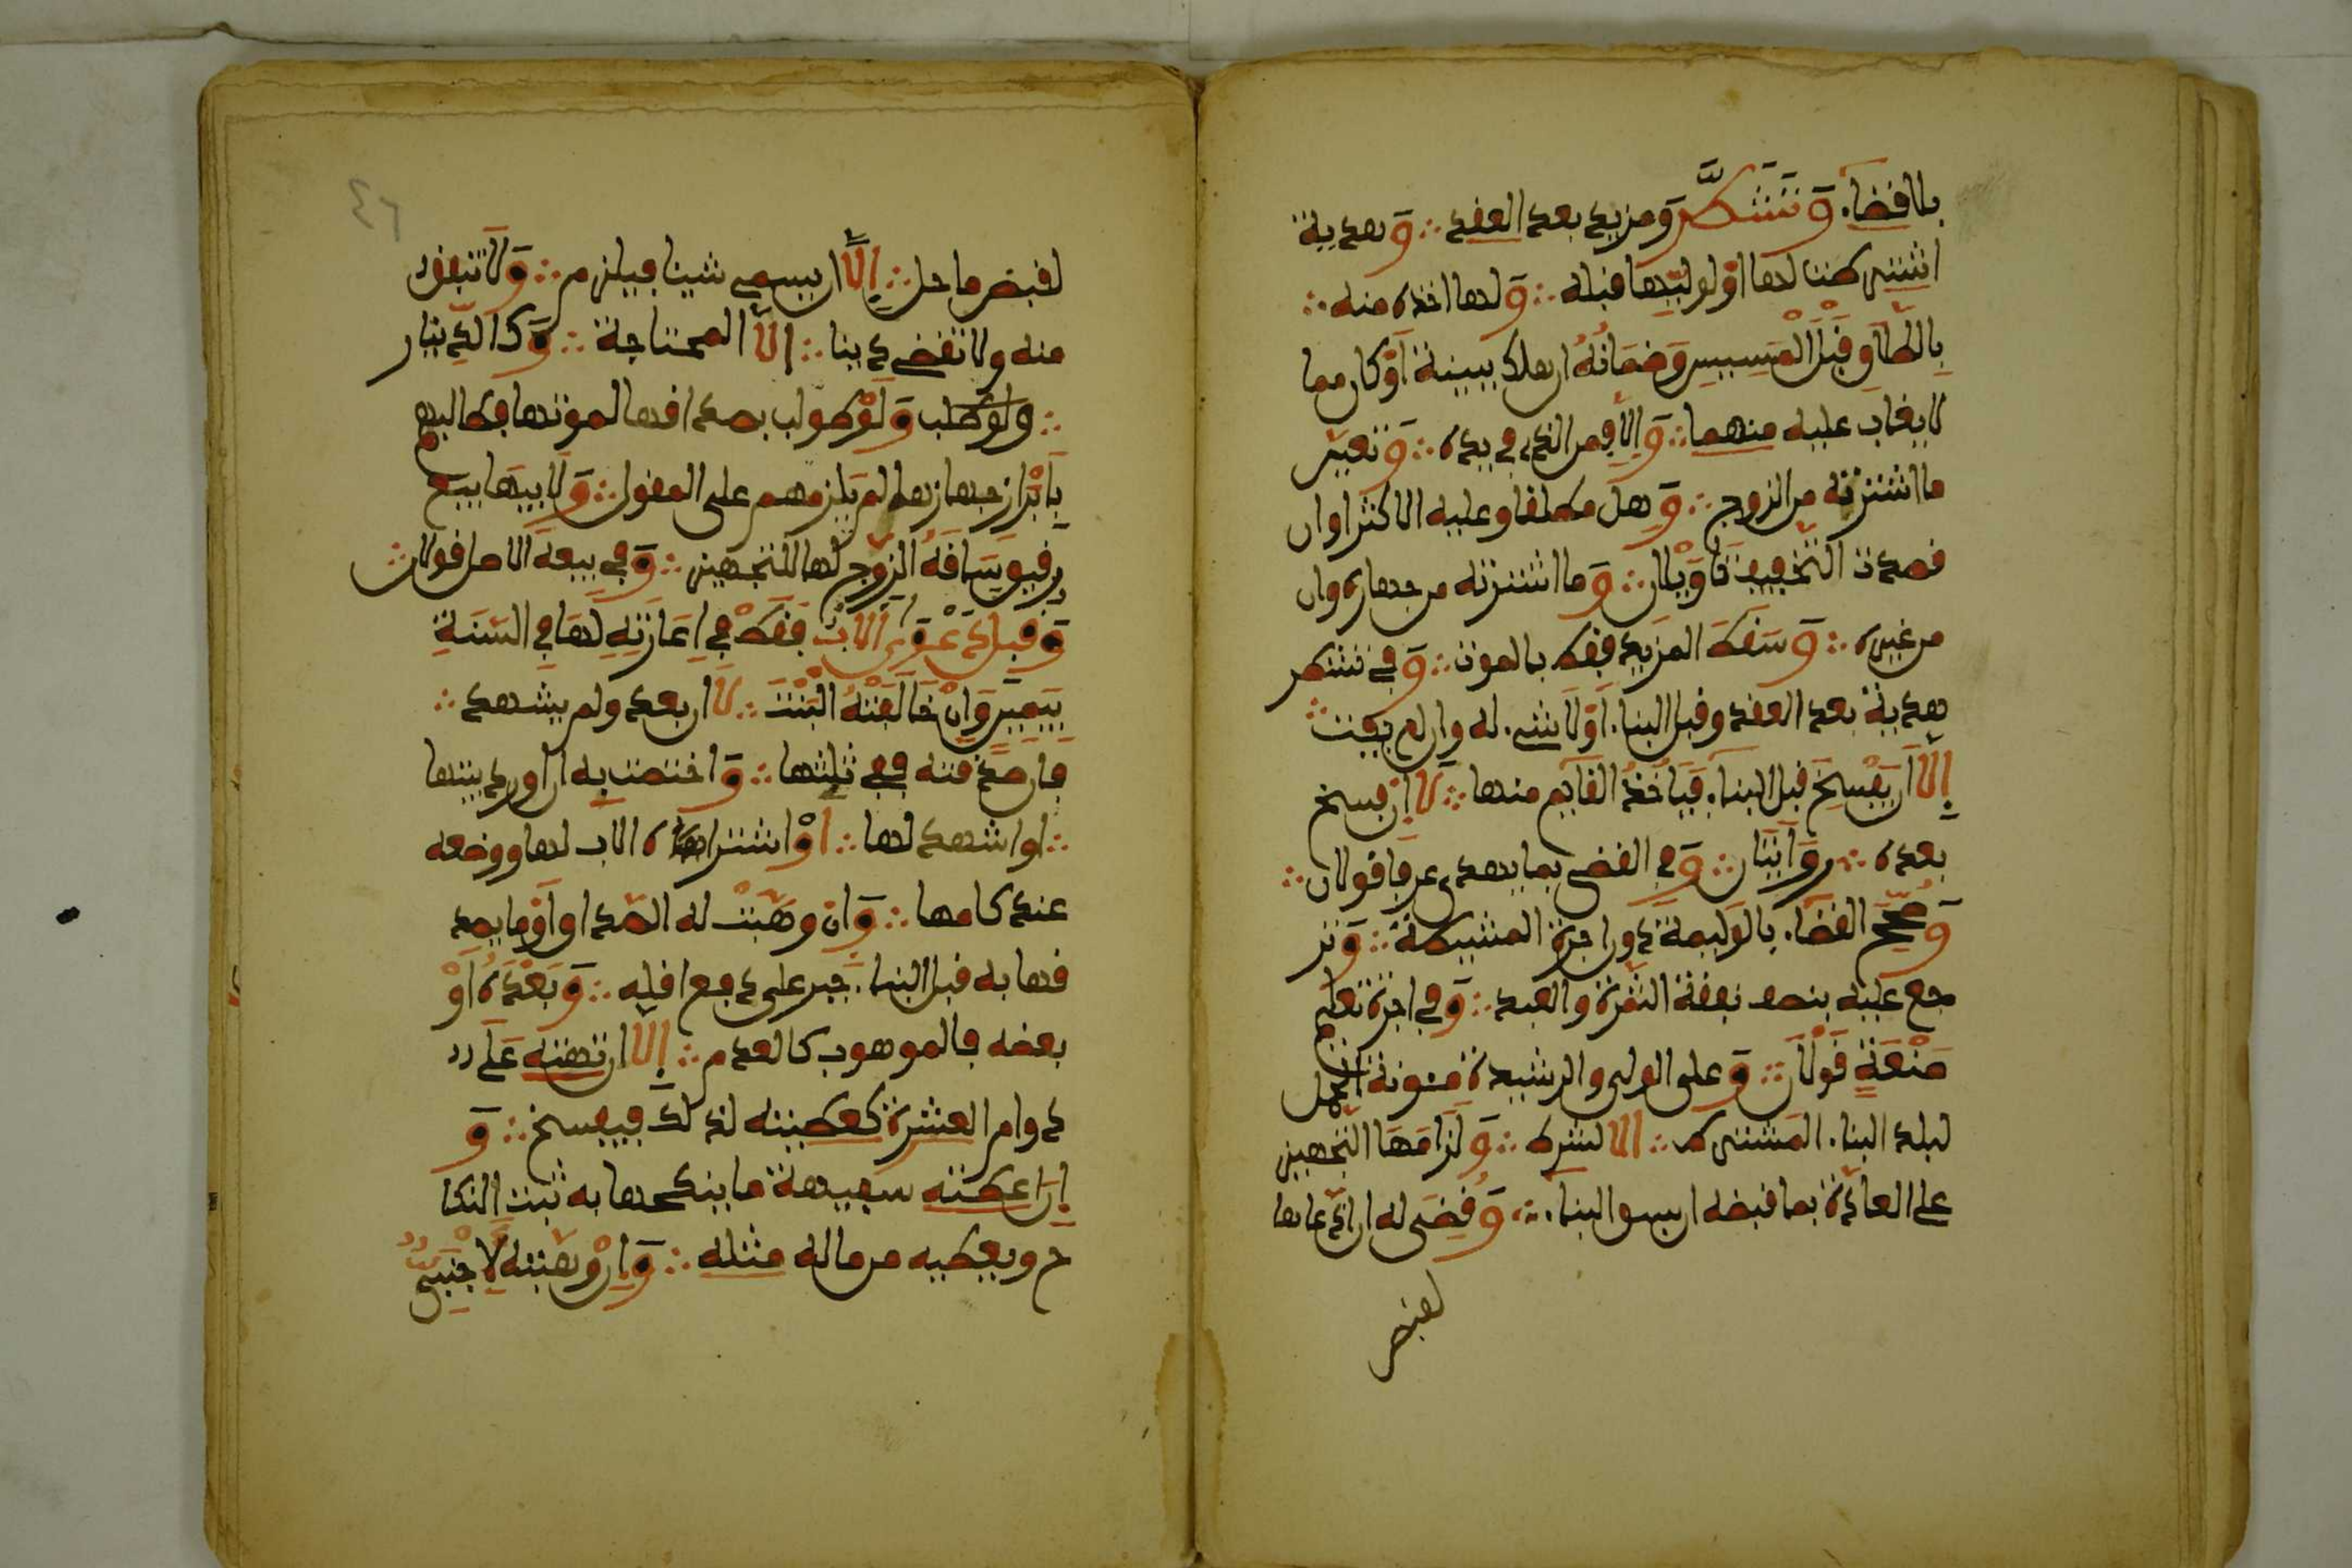 بلا قضاء. وَتَشَطَّر ومزيد بعد العقد ∴ وَهدية
اشترطت لها أو لوليها قبله ∴ وَلها أخذه منه ∴
بِالطلاق قَبْلَ الْمَسِيسِ وَضَمَانُهُ ان هلك ببينة أو كان مما
لا يغاب عليه منهما ∴ وَإلا فمن الذي في يده ∴ وَتعين
ما اشترته من الزوج ∴ وَهل مطلقا وعليه الاكثر او ان
قصدت التخفيف تَأْوِيلَان ∴ وَما اشترته من جهازه وان
من غيره ∴ وَسقط المزيد فقط بالموت ∴ وَفي تشطر
هدية بعد العقد وقبل البناء. أو لا شيء. له وان لم تفت ∴
إلا أن يَفْسخ قبل البناء. فيأخُذُ القائم منها ∴ لا ان فسخ
بعده ∴ روايتان ∴ وَفي القضى بما يهدى عرفا قولان ∴
وَصُحِّحَ القضاء. بالوليمة دون اجرة الماشطة ∴ وَتر
جع عليه بنصف نفقة الثمرة والعبد ∴ وَفي اجرة تعليم
صَنْعَةٍ قَوْلَان ∴ وَعلى الولي والرشيدة مئونة الحمل
لبلد البناء. المشترط ∴ إلا لشرط ∴ وَلزامَهَا التجهيز
على العادة بما قبضه ان سبق البناء. ∴ وَقُضِيَ له ان دعاها
لقبض
٤٦
لقبض ما حل ∴ إلا ان يسمي شيئا فيلزم ∴ وَلا تنفق
منه ولا تقضي دينا ∴ إلا المحتاجة ∴ وَكالدينار
∴ ولو طلب وَلَوْ طولب بصداقها لموتها فطالبهم
بِإبْرَازِ جهازها لم يلزمهم على المقول ∴ وَلأبيها بيع
رقيق سَاقَهُ الزوج لها للتجهيز ∴ وَفي بيعه الاصل قولان ∴
وَقبل دَعْوَى الأَبِ فَقَطْ في إعَارَتِهِ لهَا في السَّنَةِ
بِيَمِينٍ وَإنْ خَالَفَتْهُ الْبِنْتُ ∴ لا ان بعد ولم يشهد ∴
فإن صدقته ففي ثلثها ∴ وَاختصت به ان اورد بيتها
∴ او اشهد لها ∴ أَوْ اشتراه الاب لها ووضعه
عند كأمها ∴ وَان وهَبَتْ له الصداق أَوْ ما يصد
قها به قبل البناء. جبر على دفع اقله ∴ وَبَعْدَهُ أَوْ
بعضه فالموهوب كالعدم ∴ إلا ان تهبه عَلَى د
دوام العشرة كعطيته لذلك فيفسخ ∴ وَ
إن اعطته سفيهة ما ينكحها به ثبت النكا
ح ويعطيه من ماله مثله ∴ وَإن وهبته لأَجْنَبِيٍّ